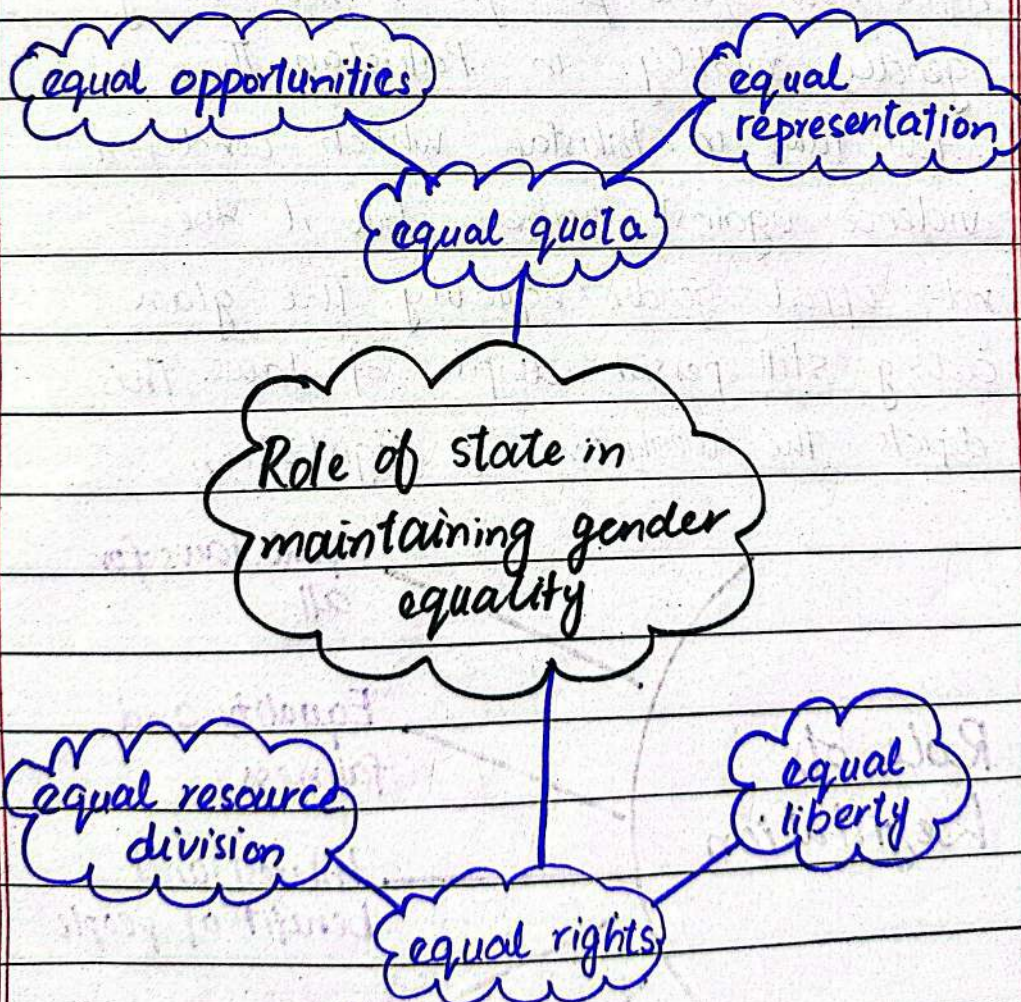 equal opportunities
equal
representation
equal quota
Role of state in
maintaining gender
equality
equal resource
division
equal
liberty
equal rights